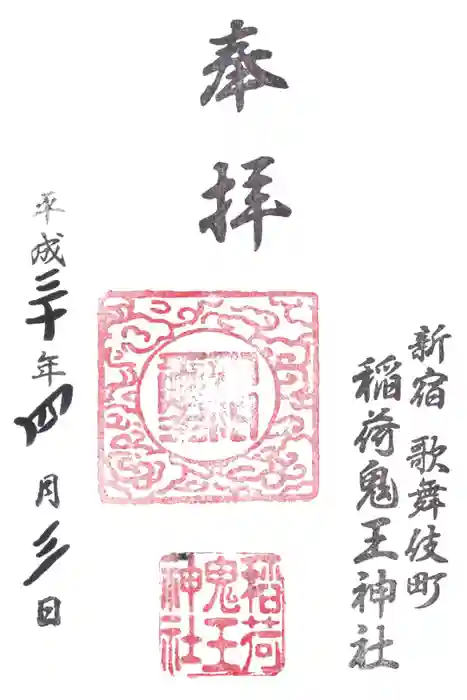 新宿 歌舞伎町
稲荷鬼王神社
奉拝
稲荷
鬼王
神社
平成三十年四月三日